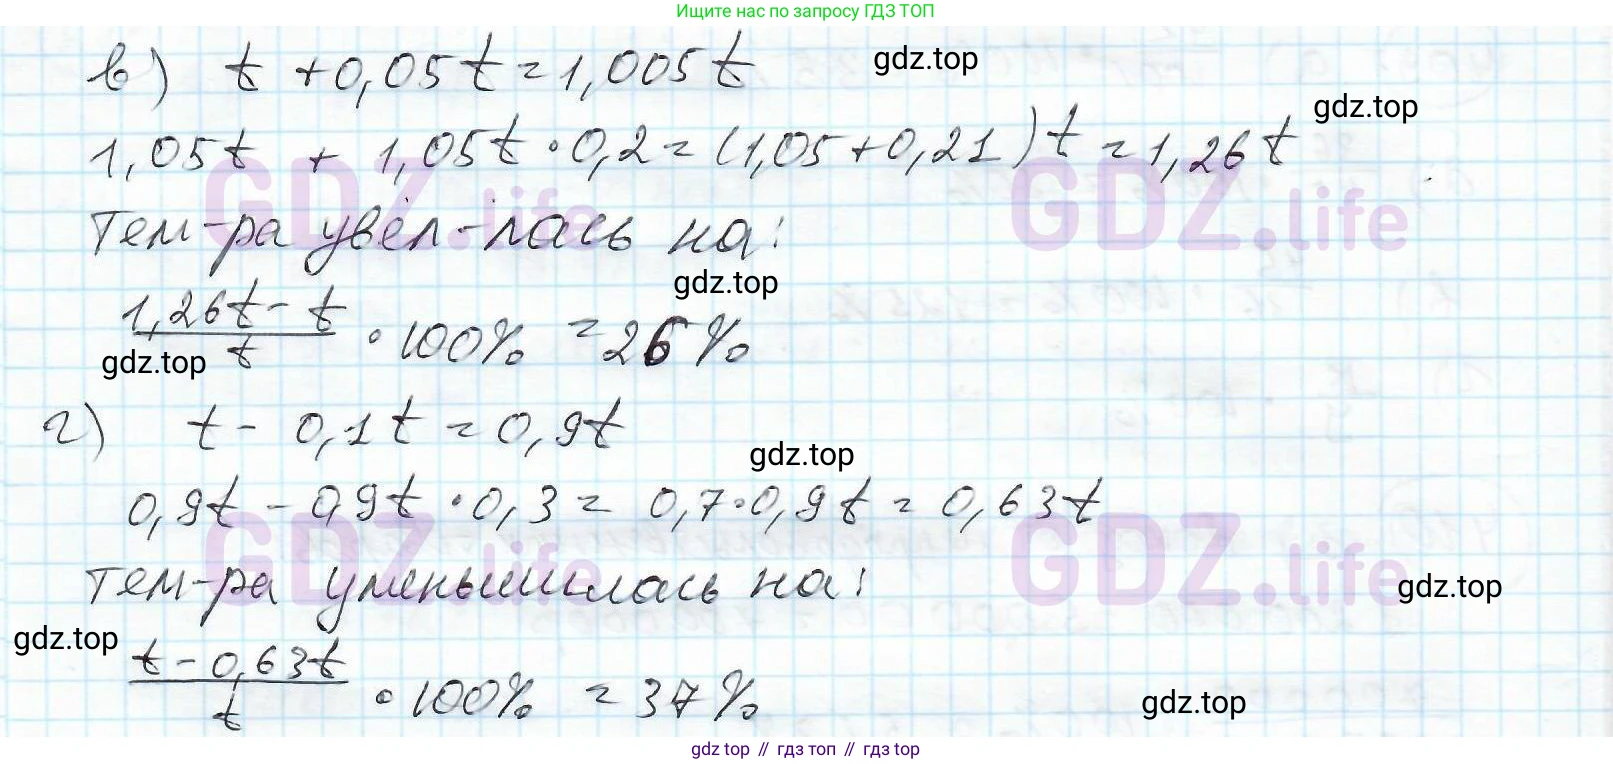 Ищите нас по запросу ГДЗ ТОП
в) t + 0,05t = 1,005t
gdz.top
gdz.top
1,05t + 1,05t · 0,2 = (1,05 + 0,21)t = 1,26t
GDZ.life
GDZ.life
тем-ра увел-лась на:
gdz.top
(1,26t - t)/t · 100% = 26%
gdz.top
г) t - 0,1t = 0,9t
gdz.top
0,9t - 0,9t · 0,3 = 0,7 · 0,9t = 0,63t
GDZ.life
GDZ.life
тем-ра уменьшилась на:
gdz.top
gdz.top
(t - 0,63t)/t · 100% = 37%
gdz.top
gdz top // гдз топ // гдз top